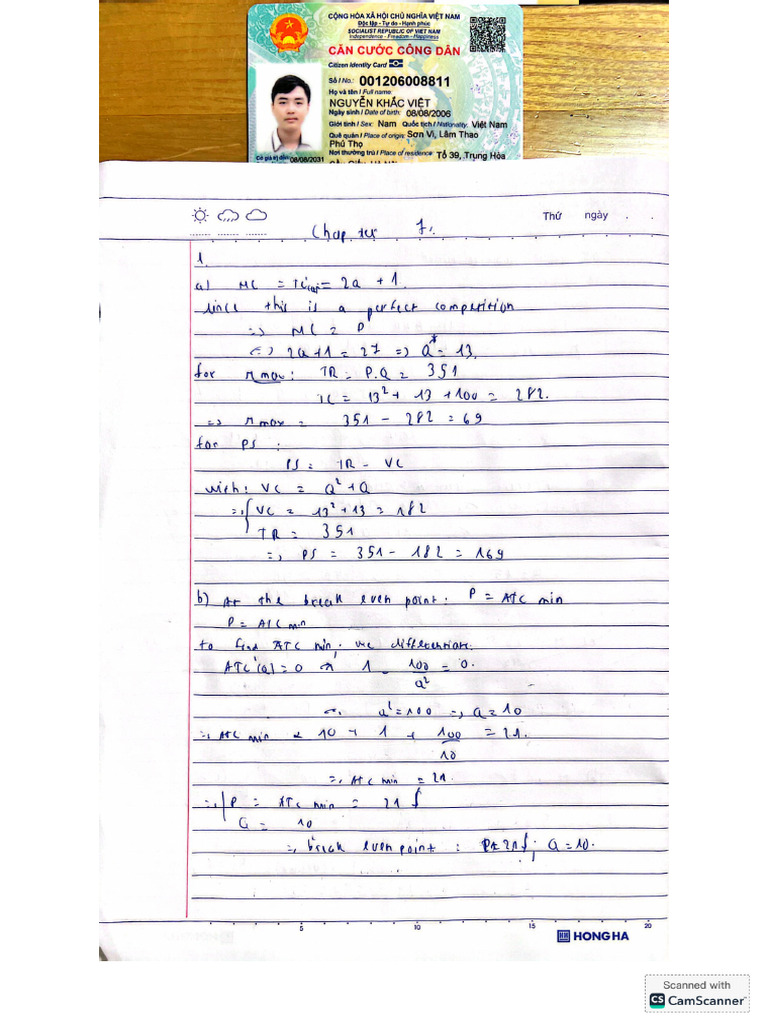 CỘNG HÒA XÃ HỘI CHỦ NGHĨA VIỆT NAM
Độc lập - Tự do - Hạnh phúc
SOCIALIST REPUBLIC OF VIET NAM
Independence - Freedom - Happiness
CĂN CƯỚC CÔNG DÂN
Citizen Identity Card
Số / No.: 001206008811
Họ và tên / Full name:
NGUYỄN KHẮC VIỆT
Ngày sinh / Date of birth: 08/08/2006
Giới tính / Sex: Nam Quốc tịch / Nationality: Việt Nam
Quê quán / Place of origin: Sơn Vi, Lâm Thao
Phú Thọ
Nơi thường trú / Place of residence: Tổ 39, Trung Hòa
Có giá trị đến: 08/08/2031
Thứ ngày . .
Chapter 7.
1.
a) MC = TC'(Q) = 2Q + 1
since this is a perfect competition
=> MC = P
<=> 2Q+1 = 27 => Q* = 13.
for π max: TR = P.Q = 351
TC = 13² + 13 + 100 = 282.
=> π max = 351 - 282 = 69
for PS :
PS = TR - VC
with: VC = Q² + Q
=> { VC = 13² + 13 = 182
TR = 351
=> PS = 351 - 182 = 169
b) At the break even point: P = ATC min
P = ATC min
to find ATC min, we differentiate.
ATC'(Q) = 0 <=> 1 - 100/Q² = 0.
<=> Q² = 100 => Q = 10
=> ATC min = 10 + 1 + 100/10 = 21.
=> ATC min = 21.
=> { P = ATC min = 21 $
Q = 10
=> break even point : P = 21 $; Q = 10.
5 10 15 20
HONG HA
Scanned with
CS CamScanner